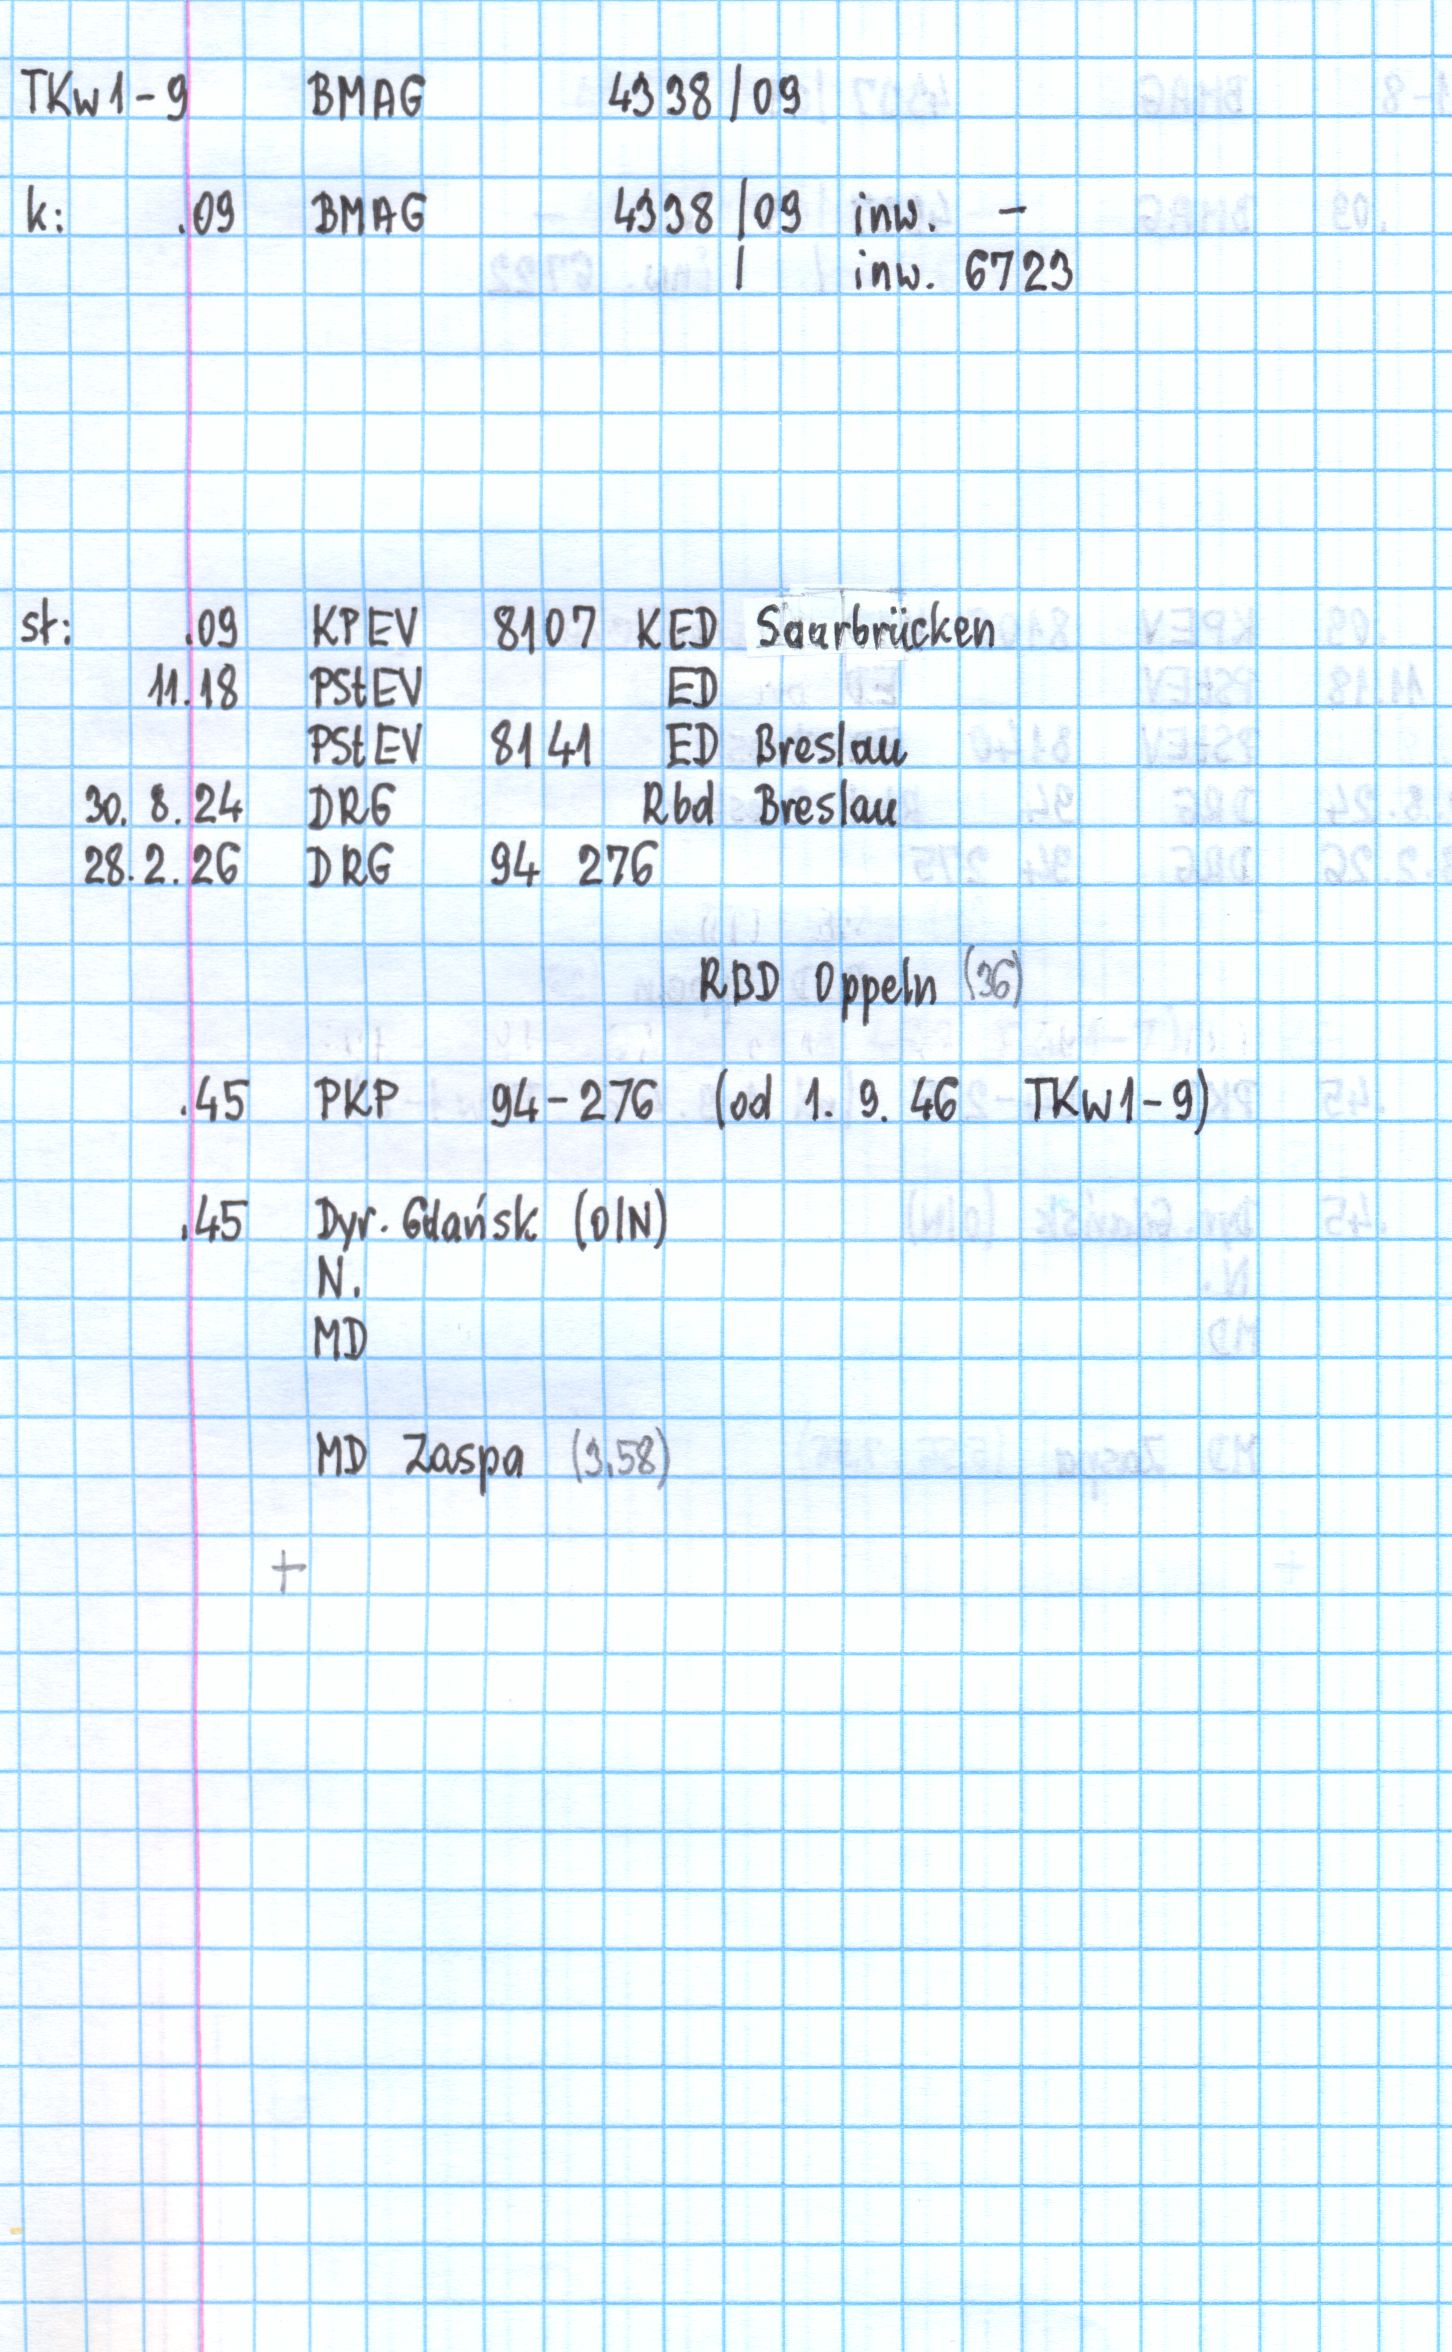 TKw1-9 BMAG 4338/09
k: .09 BMAG 4338/09 inw. -
/ inw. 6723
st: .09 KPEV 8107 KED Saarbrücken
11.18 PStEV ED
PStEV 8141 ED Breslau
30. 8. 24 DRG Rbd Breslau
28. 2. 26 DRG 94 276
RBD Oppeln (36)
.45 PKP 94-276 (od 1. 9. 46 TKw1-9)
.45 Dyr. Gdańsk (OlN)
N.
MD
MD Zaspa (3.58)
+